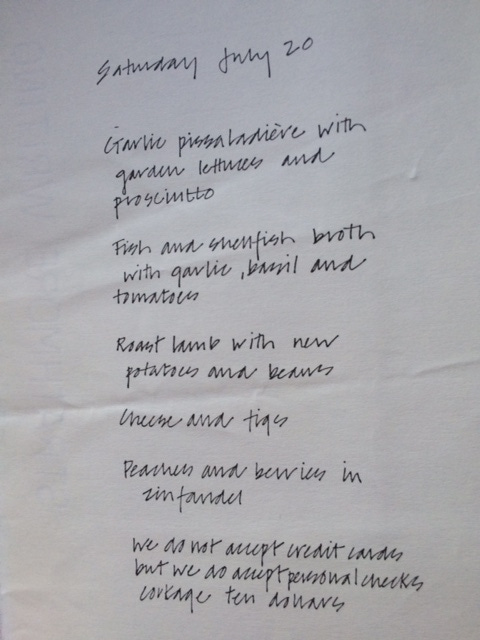 Saturday July 20
Garlic pissaladière with
garden lettuces and
prosciutto
Fish and shellfish broth
with garlic, basil and
tomatoes
Roast lamb with new
potatoes and beans
Cheese and figs
Peaches and berries in
zinfandel
We do not accept credit cards
but we do accept personal checks
corkage ten dollars